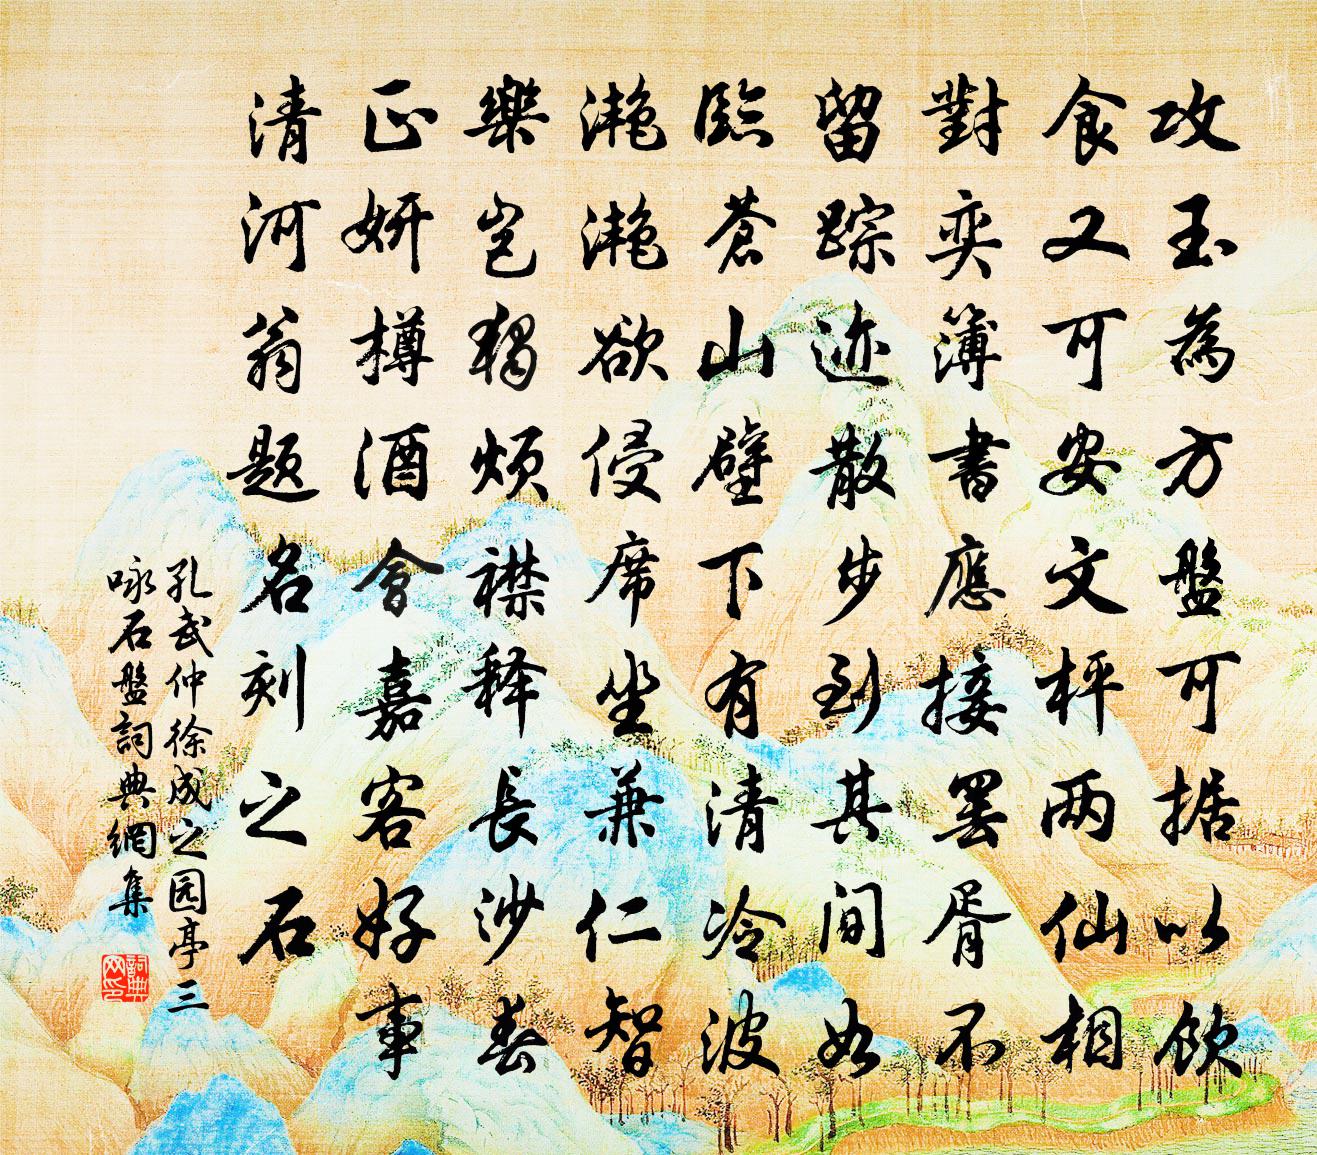 攻玉為方盤可据以飲
食又可安文枰两仙相
對奕簿書應接罢胥不
留踪迹散步到其间如
臨蒼山壁下有清冷波
滟滟欲侵席坐兼仁智
樂岂獨烦襟释長沙春
正妍樽酒會嘉客好事
清河翁题名刻之石
孔武仲徐成之园亭三
咏石盤詞典網集
詞典网印